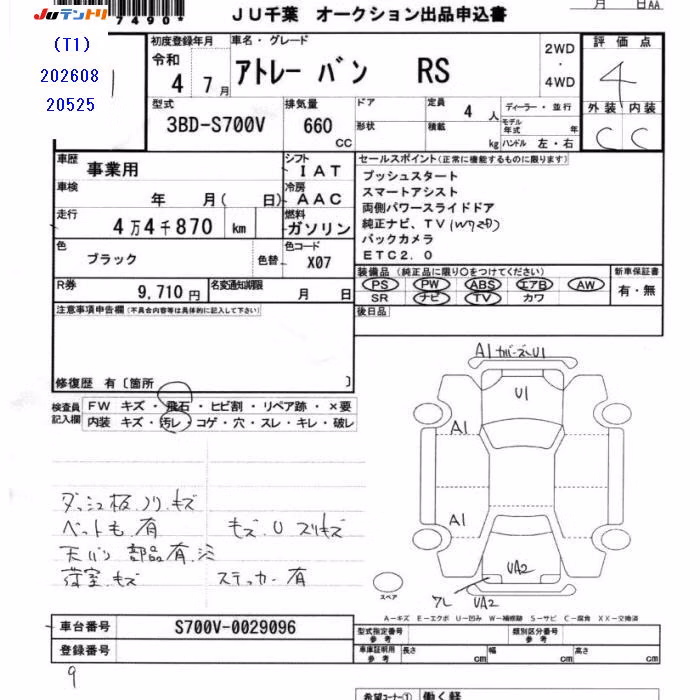 JUテントリ
7490*
JU千葉 オークション出品申込書
月 日AA
(T1)
202608
20525
初度登録年月
令和
4 7月
車名・グレード
アトレー バン RS
2WD
・
4WD
評価点
4
外装 内装
C C
型式
3BD-S700V
排気量
660 CC
ドア
形状
定員 4 人
積載 kg
ディーラー・並行
モデル年式 年
ハンドル 左・右
車歴 事業用
シフト IAT
車検 年 月( 日)
冷房 AAC
走行 4万4千870 km
燃料 ガソリン
色 ブラック 色替
色コード X07
R券 9,710円
名変通知期限 月 日
セールスポイント(正常に機能するものに限ります)
プッシュスタート
スマートアシスト
両側パワースライドドア
純正ナビ、TV
バックカメラ
ETC2.0
装備品(純正品に限り○をつけてください)
PS PW ABS エアB AW
SR ナビ TV カワ
新車保証書
有・無
後日品
注意事項申告欄(不具合内容等は具体的に記入して下さい)
修復歴 有〔箇所 〕
検査員記入欄
FW キズ・飛石・ヒビ割・リペア跡・×要
内装 キズ・汚レ・コゲ・穴・スレ・キレ・破レ
ダッシュ板ノリ、キズ
ペット毛有 キズ、U スリキズ
天バリ 部品有、シミ
荷室キズ ステッカー有
A1 カバーズレU1
U1
A1
A1
UA2
ワレ UA2
スペア
A-キズ E-エクボ U-凹み W-補修跡 S-サビ C-腐食 XX-交換済
車台番号 S700V-0029096
登録番号
型式指定番号 参考
類別区分番号 参考
車庫証明用 参考 長さ cm 幅 cm 高さ cm
9
希望コーナー① 働く軽